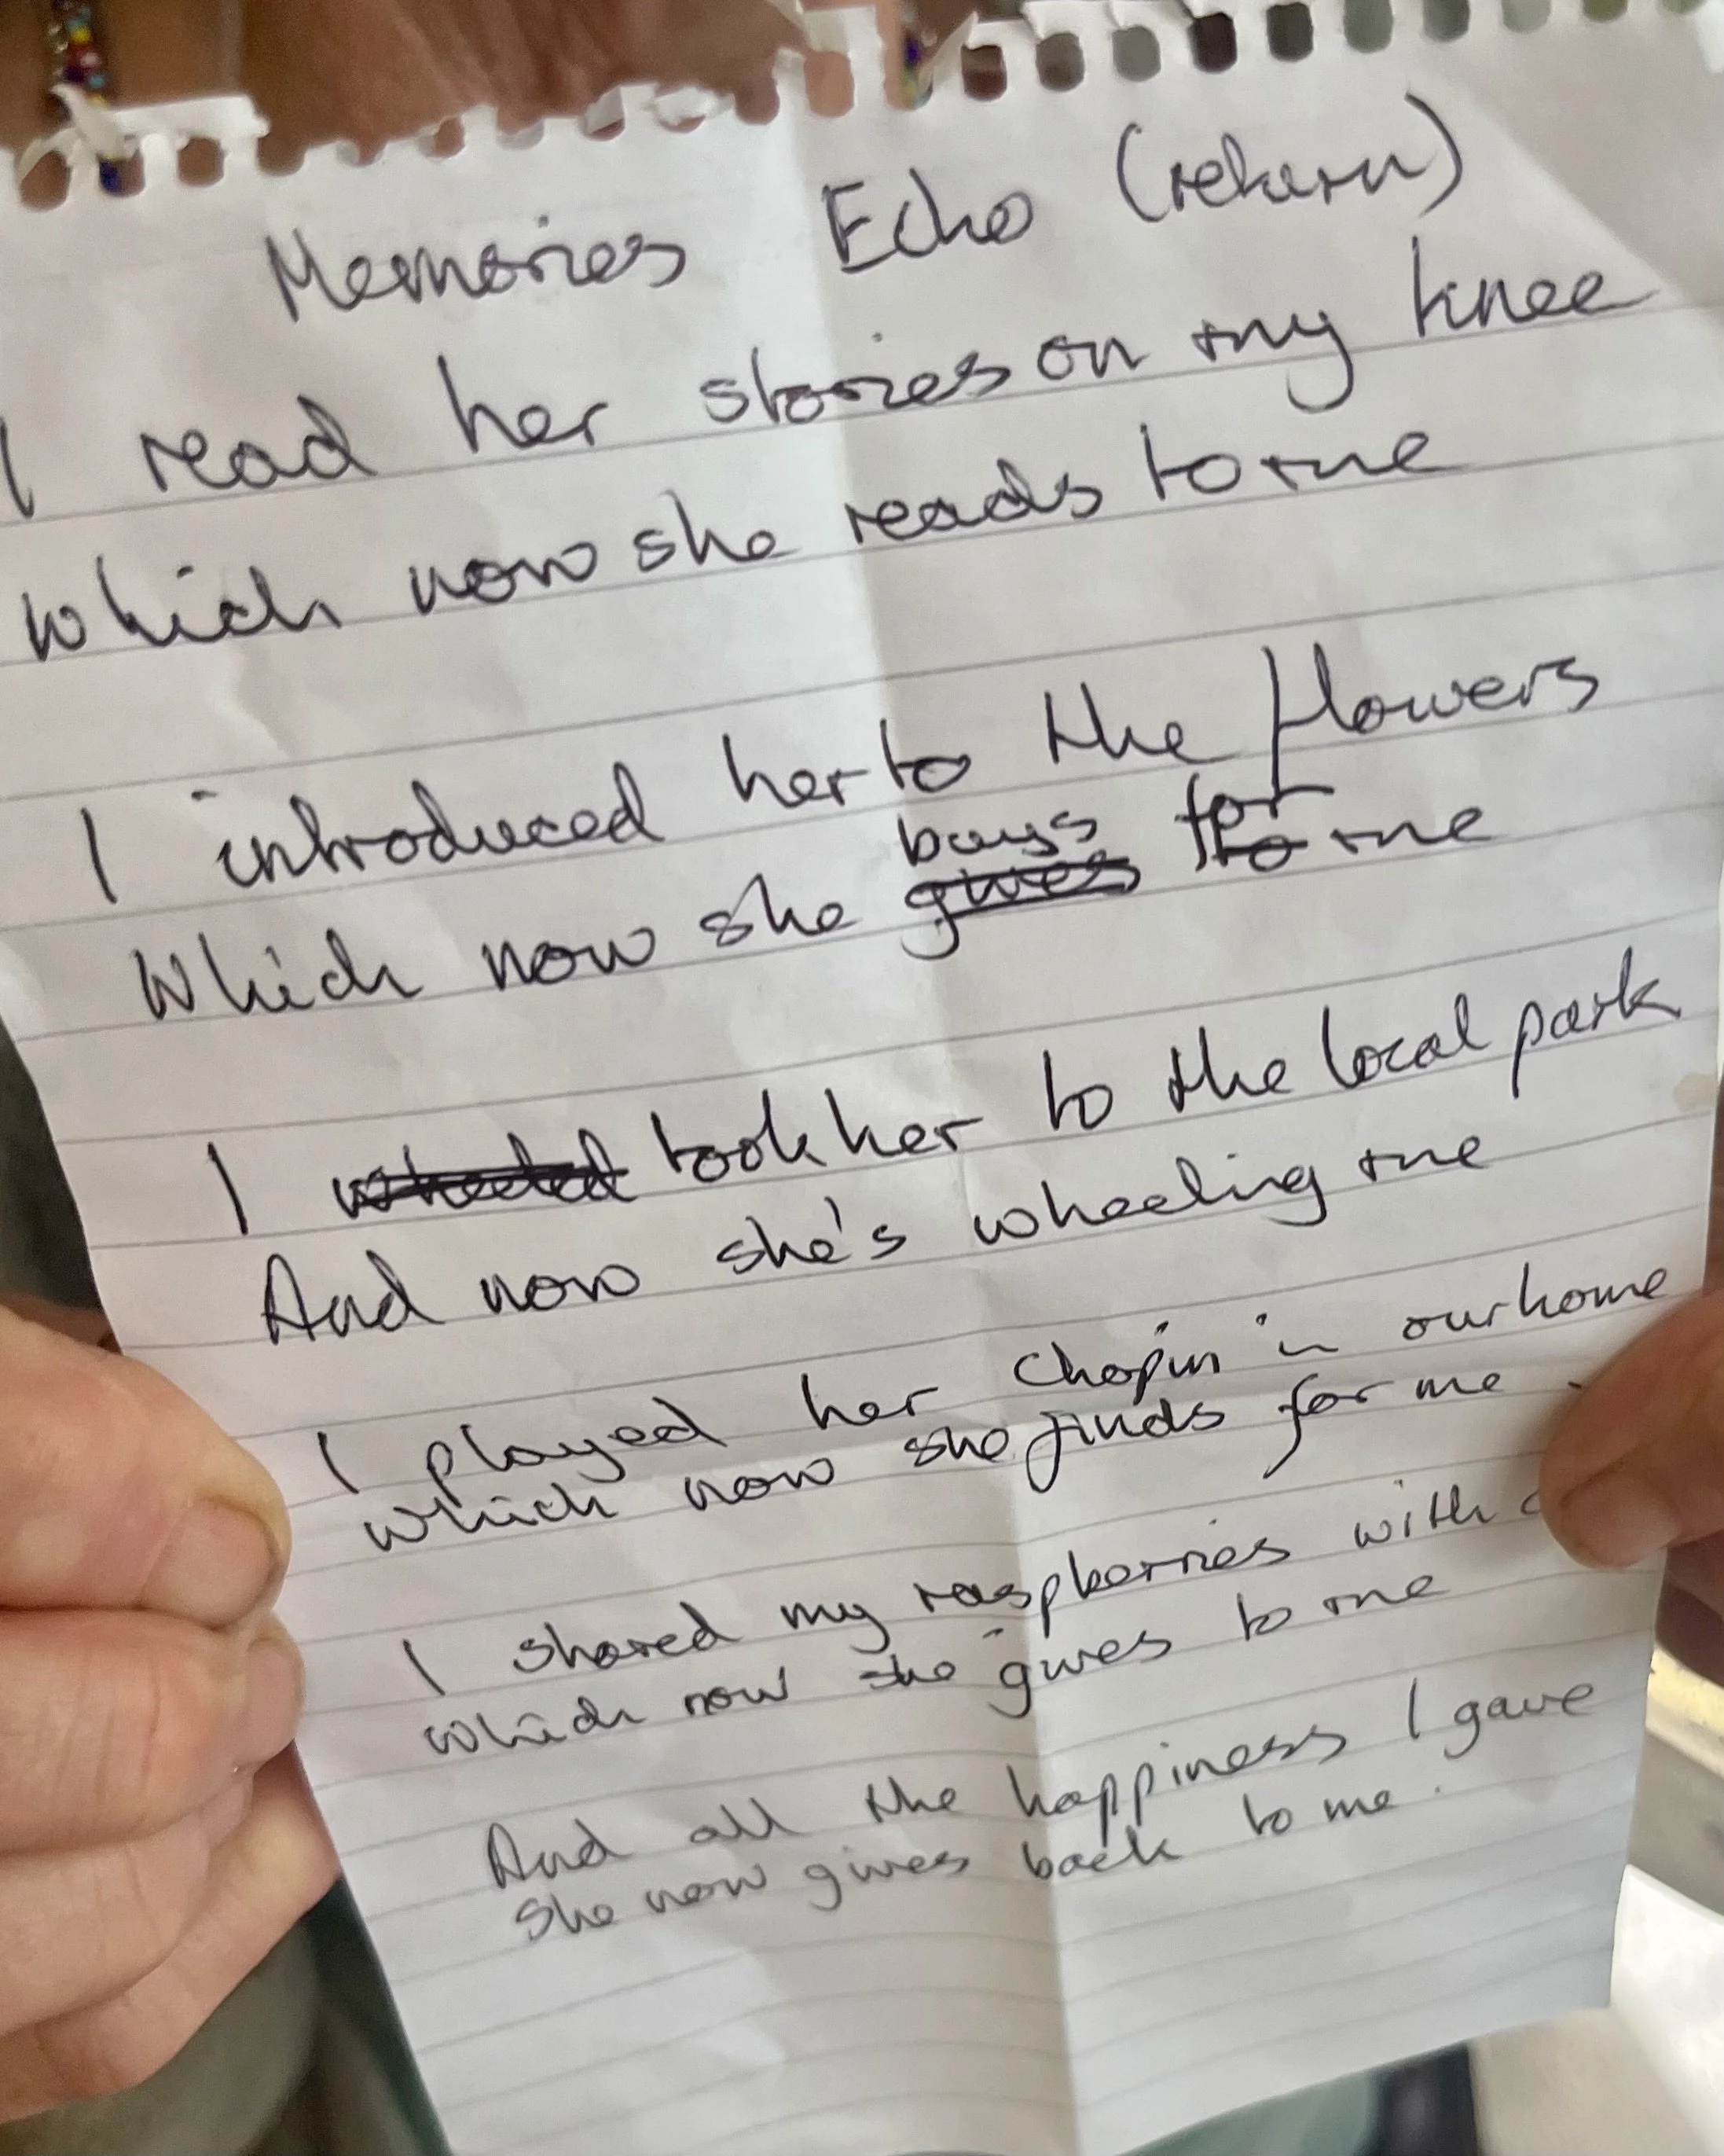 Memories Echo (return)
I read her stories on my knee
which now she reads to me
I introduced her to the flowers
Which now she gives buys to for me
I wheeled took her to the local park
And now she's wheeling me
I played her Chopin in our home
which now she finds for me
I shared my raspberries with
which now she gives to me
And all the happiness I gave
She now gives back to me.